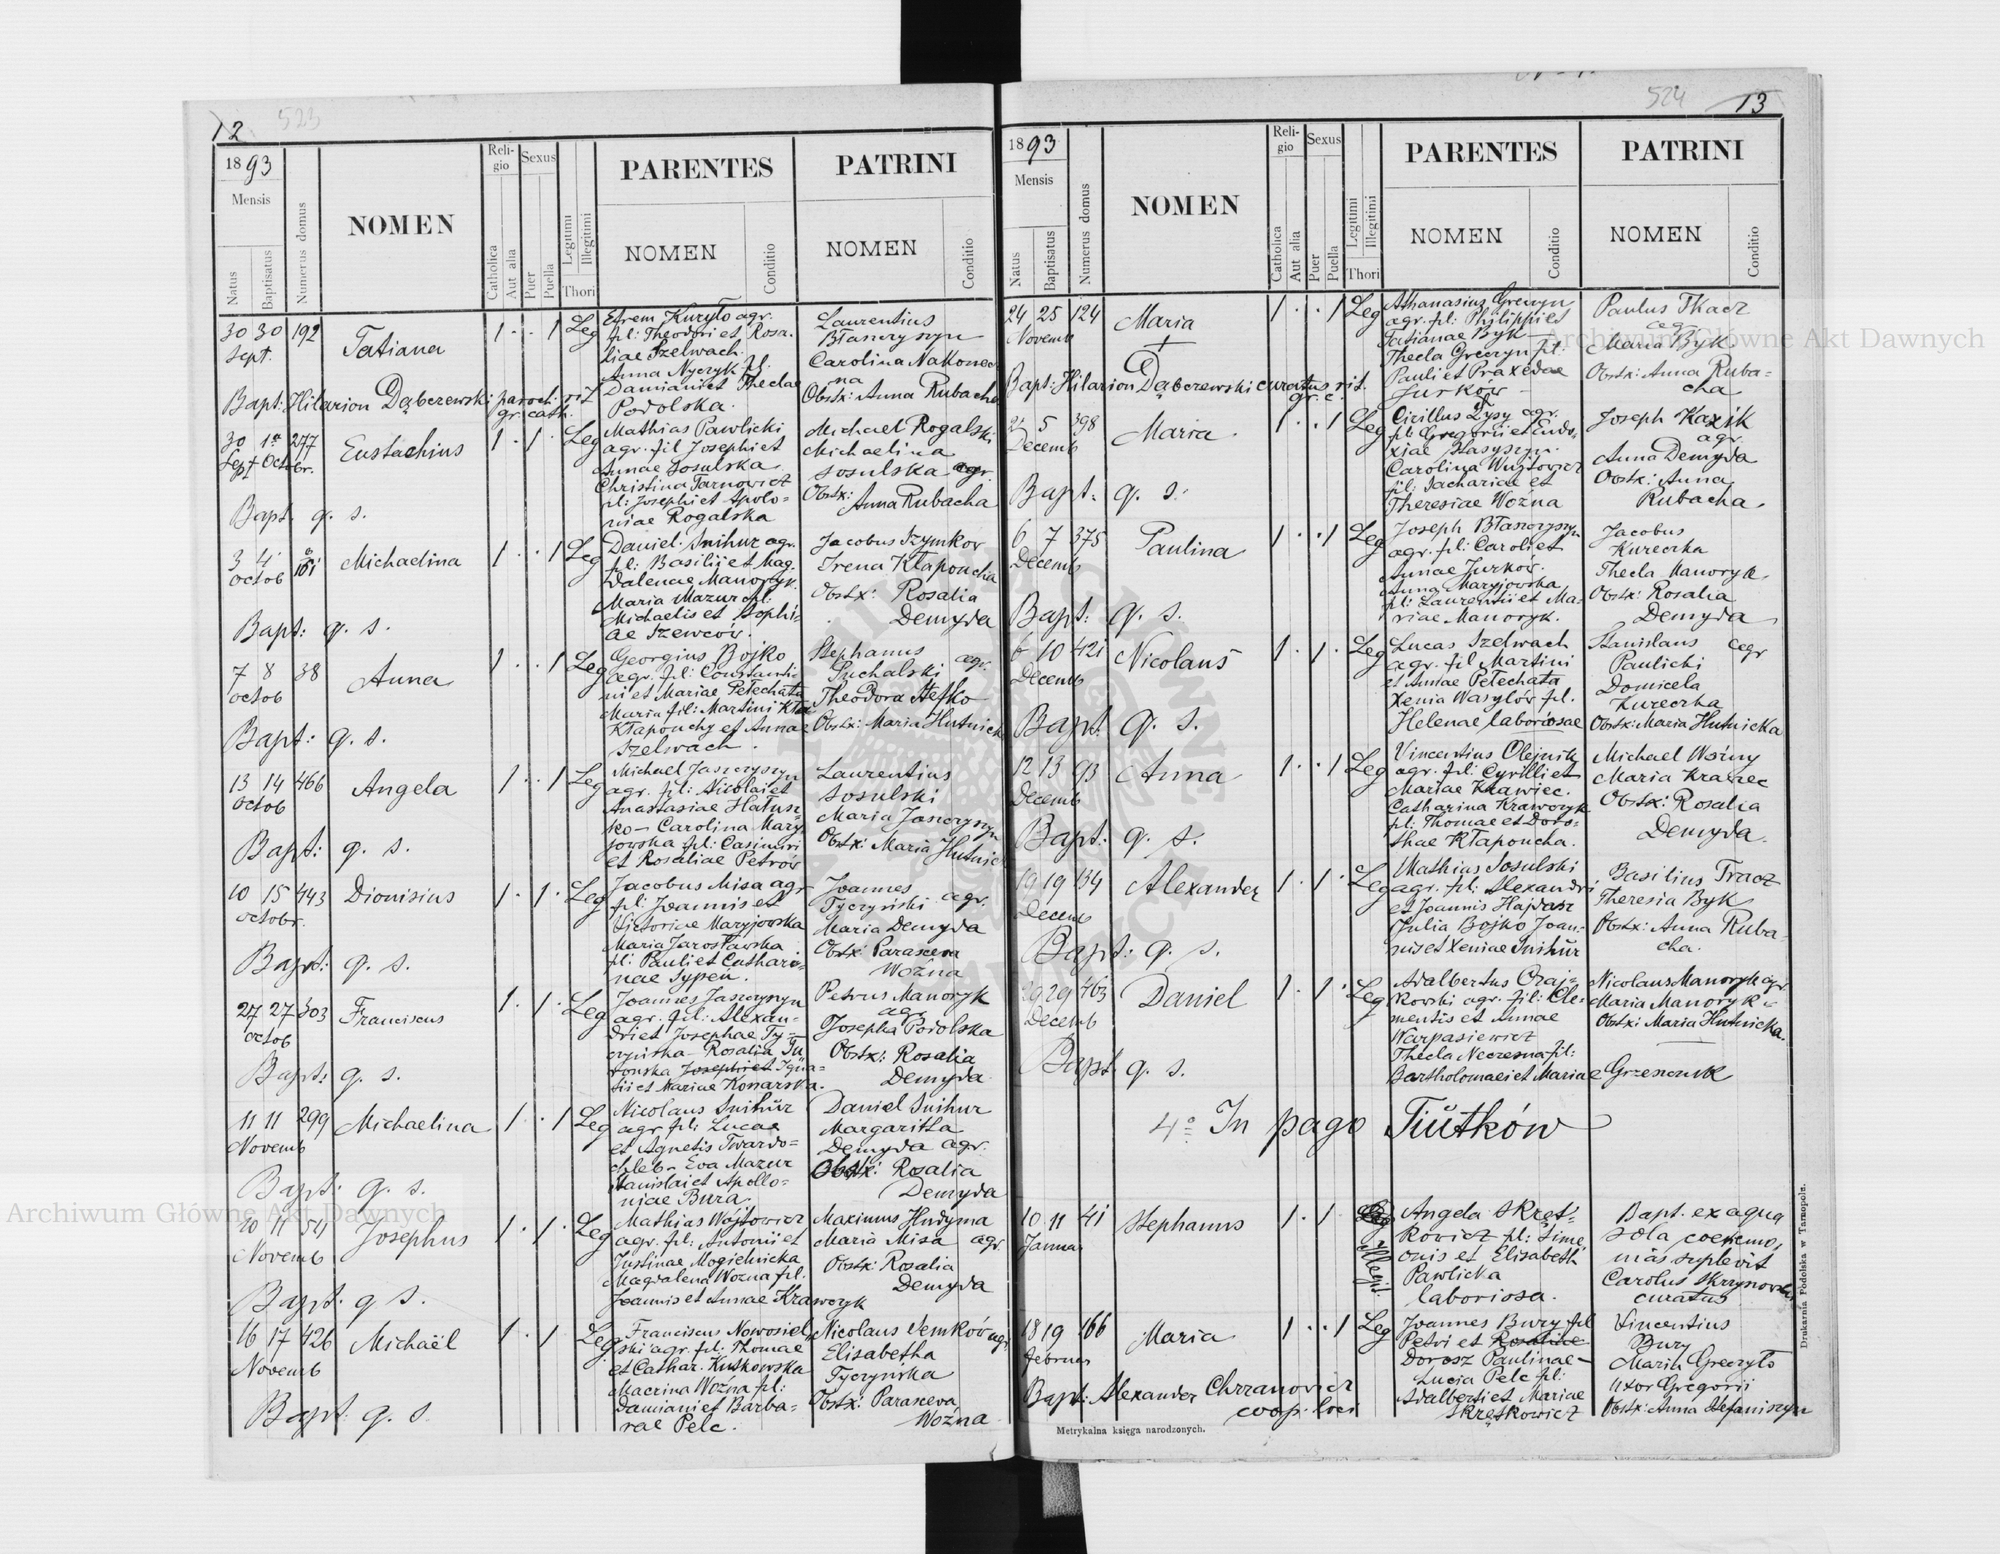 12 523
1893
Mensis
Natus
Baptisatus
Numerus domus
NOMEN
Religio
Catholica
Aut alia
Sexus
Puer
Puella
Legitimi
Illegitimi
Thori
PARENTES
NOMEN
Conditio
PATRINI
NOMEN
Conditio
30 30 192
Sept.
Tatiana
1 1 Leg
Efrem Kuryło agr.
fil: Theodori et Rosa-
liae Szelwach.
Anna Nyczyk fil.
Damiani et Theclae
Podolska.
Laurentius
Błaszczyszyn
Carolina Nakonecz
na
Obstx: Anna Rubacha
Bapt: Hilarion Dąbczewski paroch. rit
gr. cath.
30 1a 277
Sept Octobr.
Eustachius
1 1 Leg
Mathias Pawlicki
agr. fil Josephi et
Annae Sosulska
Christina Tarnowicz
fil: Josephi et Apolo-
niae Rogalska
Michael Rogalski
Michaelina
Sosulska agr.
Obstx:
Anna Rubacha
Bapt. q. s.
3 4 101
Octob
Michaelina
1 1 Leg
Daniel Snihur agr.
fil: Basilii et Mag-
dalenae Manoryk.
Maria Mazur fil.
Michaelis et Sophi-
ae Szewców.
Jacobus Szymkow
Irena Kłapoucha
Obstx: Rosalia
Demyda
Bapt: q. s.
7 8 38
octob
Anna
1 1 Leg
Georgius Bojko
agr. fil: Constanti-
ni et Mariae Pełechata
Maria fil: Martini Kła
Kłapouchy et Annae
Szelwach.
Stephanus agr.
Suchalski
Theodora Stefko
Obstx: Maria Hutnick
Bapt: q. s.
13 14 466
Octob
Angela
1 1 Leg
Michael Jaszczyszyn
agr. fil: Nicolai et
Anastasiae Hałusz-
ko - Carolina Mary-
jowska fil: Casimiri
et Rosaliae Petrów
Laurentius
Sosulski
Maria Jaszczyszyn
Obstx: Maria Hutnic
Bapt: q. s.
10 15 443
octobr.
Dionisius
1 1 Leg
Jacobus Misa agr
fil: Joannis et
Victoriae Maryjowska
Maria Jarosławska
fil: Pauli et Cathari-
nae Sypeń.
Joannes
Tyczyński agr.
Maria Demyda
Obstx: Parasceva
Woźna
Bapt: q. s.
27 27 303
octob
Franciscus
1 1 Leg
Joannes Jaszczyszyn
agr. fil: Alexan-
dri et Josephae Ty-
czyńska - Rosalia Tu-
Josephi et Igna-
tii et Mariae Konarska.
Petrus Manoryk
agr
Josepha Podolska
Obstx: Rosalia
Demyda
Bapt: q. s.
11 11 299
Novemb
Michaelina
1 1 Leg
Nicolaus Snihur
agr fil: Lucae
et Agnetis Twardo-
chleb - Eva Mazur
Stanislai et Apollo-
niae Bura.
Daniel Snihur
Margaritha
Demyda agr.
Obstx: Rosalia
Demyda
Bapt: q. s.
10 11 541
Novemb
Josephus
1 1 Leg
Mathias Wójtowicz
agr. fil: Antonii et
Justinae Mogielnicka
Magdalena Wozna fil.
Joannis et Annae Krawczyk
Maximus Hudyma
Maria Misa agr
Obstx: Rosalia
Demyda
Bapt. q. s.
16 17 426
Novemb
Michaël
1 1 Leg
Franciscus Nowosiel-
ski agr. fil: Thomae
et Cathar. Kutkowska
Macrina Woźna fil:
Damiani et Barba-
rae Pelc.
Nicolaus Demków agr
Elisabetha
Tyczyńska
Obstx: Parasceva
Woźna
Bapt: q. s.
524 13
1893
Mensis
Natus
Baptisatus
Numerus domus
NOMEN
Religio
Catholica
Aut alia
Sexus
Puer
Puella
Legitimi
Illegitimi
Thori
PARENTES
NOMEN
Conditio
PATRINI
NOMEN
Conditio
24 25 124
Novemb
Maria
1 1 Leg
Athanasius Greczyn
agr. fil: Philippi et
Tatianae Byk -
Thecla Greczyn fil:
Pauli et Praxedae
Jurków
Paulus Tkacz
agr
Maria Byk
Obstx: Anna Ruba-
cha
Bapt: Hilarion Dąbczewski curatus rit.
gr. c.
5 398
Decemb
Maria
1 1 Leg
Cirillus Łysy agr.
fil: Gregorii et Eudo-
xiae Stasyszyn.
Carolina Wujtowicz
fil: Zachariae et
Theresiae Woźna
Joseph Kazik
agr.
Anna Demyda
Obstx: Anna
Rubacha.
Bapt: q. s.
6 7 375
Decemb
Paulina
1 1 Leg
Joseph Błaszczyszyn
agr. fil: Caroli et
Annae Jurków.
Anna Maryjowska
fil: Laurentii et Ma-
riae Manoryk.
Jacobus
Kureczka
Thecla Manoryk
Obstx: Rosalia
Demyda
Bapt: q. s.
6 10 421
Decemb
Nicolaus
1 1 Leg
Lucas Szelwach
agr. fil Martini
et Annae Pełechata
Xenia Wasylów fil.
Helenae laboriosae
Stanislaus agr
Paulicki
Domicela
Kureczka
Obstx: Maria Hutnicka
Bapt: q. s.
12 13 93
Decemb
Anna
1 1 Leg
Vincentius Olejnik
agr. fil: Cyrilli et
Mariae Krawiec.
Catharina Krawczyk
fil: Thomae et Doro-
theae Kłapoucha.
Michael Woźny
Maria Krawiec
Obstx: Rosalia
Demyda.
Bapt: q. s.
19 19 134
Decemb
Alexander
1 1 Leg
Mathias Sosulski
agr. fil: Alexandri
et Joannis Hajdasz
Julia Bojko Joan-
nis et Xeniae Snihur
Basilius Tracz
Theresia Byk
Obstx: Anna Ruba-
cha.
Bapt: q. s.
29 29 463
Decemb
Daniel
1 1 Leg
Adalbertus Czaj-
kowski agr. fil: Cle-
mentis et Annae
Karpasiewicz
Thecla Neczesna fil:
Bartholomaei et Mariae Grzesczuk
Nicolaus Manoryk agr
Maria Manoryk
Obstx: Maria Hutnicka.
Bapt. q. s.
4o In pago Tiutków
10 11 41
Januar
Stephanus
1 1 Leg
Illegit.
Angela Skręt-
kowicz fil: Sime
onis et Elisabeth
Pawlicka
laboriosa.
Bapt. ex aqua
sola coeremo,
nias suplevit
Carolus Skrzynowski
curatus
18 19 166
februar
Maria
1 1 Leg
Joannes Bury fil
Petri et Rosaliae
Dorosz Paulinae -
Lucia Pelc fil:
Adalberti et Mariae
Skrętkowicz
Vincentius
Bury
Maria Greczyło
uxor Gregorii
Obstx: Anna Stefaniszyn
Bapt: Alexander Chrzanowicz
coop. loci
Metrykalna księga narodzonych.
Drukarnia Podolska w Tarnopolu.
Archiwum Główne Akt Dawnych
Archiwum Główne Akt Dawnych